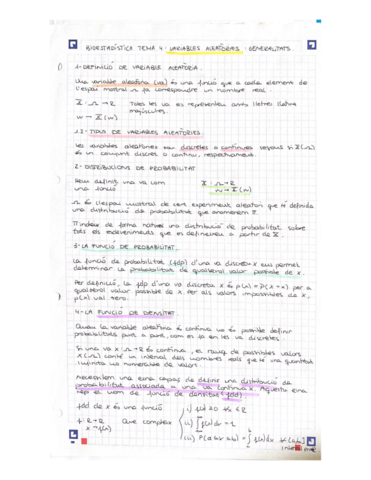 BIOESTADÍSTICA TEMA 4: VARIABLES ALEATÒRIES: GENERALITATS
1- DEFINICIÓ DE VARIABLE ALEATÒRIA
Una variable aleatòria (va) és una funció que a cada element de
l'espai mostral Ω fa correspondre un nombre real.
X : Ω → R Totes les va es representen amb lletres llatines
majúscules.
w → X(w)
1.1- TIPUS DE VARIABLES ALEATÒRIES
Les variables aleatòries són discretes o contínues segons si X(Ω)
és un conjunt discret o continu, respectivament.
2- DISTRIBUCIONS DE PROBABILITAT
Hem definit una va com
una funció
X : Ω → R
w → X(w)
Ω és l'espai mostral de cert experiment aleatori que té definida
una distribució de probabilitat que anomenem P.
P indueix de forma natural una distribució de probabilitat sobre
tots els esdeveniments que es defineixen a partir de X.
3- LA FUNCIÓ DE PROBABILITAT
La funció de probabilitat (fdp) d'una va discreta X ens permet
determinar la probabilitat de qualsevol valor possible de X.
Per definició, la fdp d'una va discreta X és p(x) = P(X=x) per a
qualsevol valor possible de X. Per als valors impossibles de X,
p(x) val zero.
4- LA FUNCIÓ DE DENSITAT
Quan la variable aleatòria és contínua no és possible definir
probabilitats punt a punt, com es fa en les va discretes.
Si una va X : Ω → R és contínua, el rang de possibles valors
X(Ω) conté un interval dels nombres reals que té una quantitat
infinita no numerable de valors.
Necessitem una eina capaç de definir una distribució de
probabilitat associada a una va contínua X. Aquesta eina
rep el nom de funció de densitat (fdd)
fdd de X és una funció
f : R → R
x → f(x)
Que compleix
i) f(x) ≥ 0 ∀x ∈ R
ii) ∫ f(x) dx = 1
iii) P(a ≤ X ≤ b) = ∫ f(x) dx ∀ [a,b]